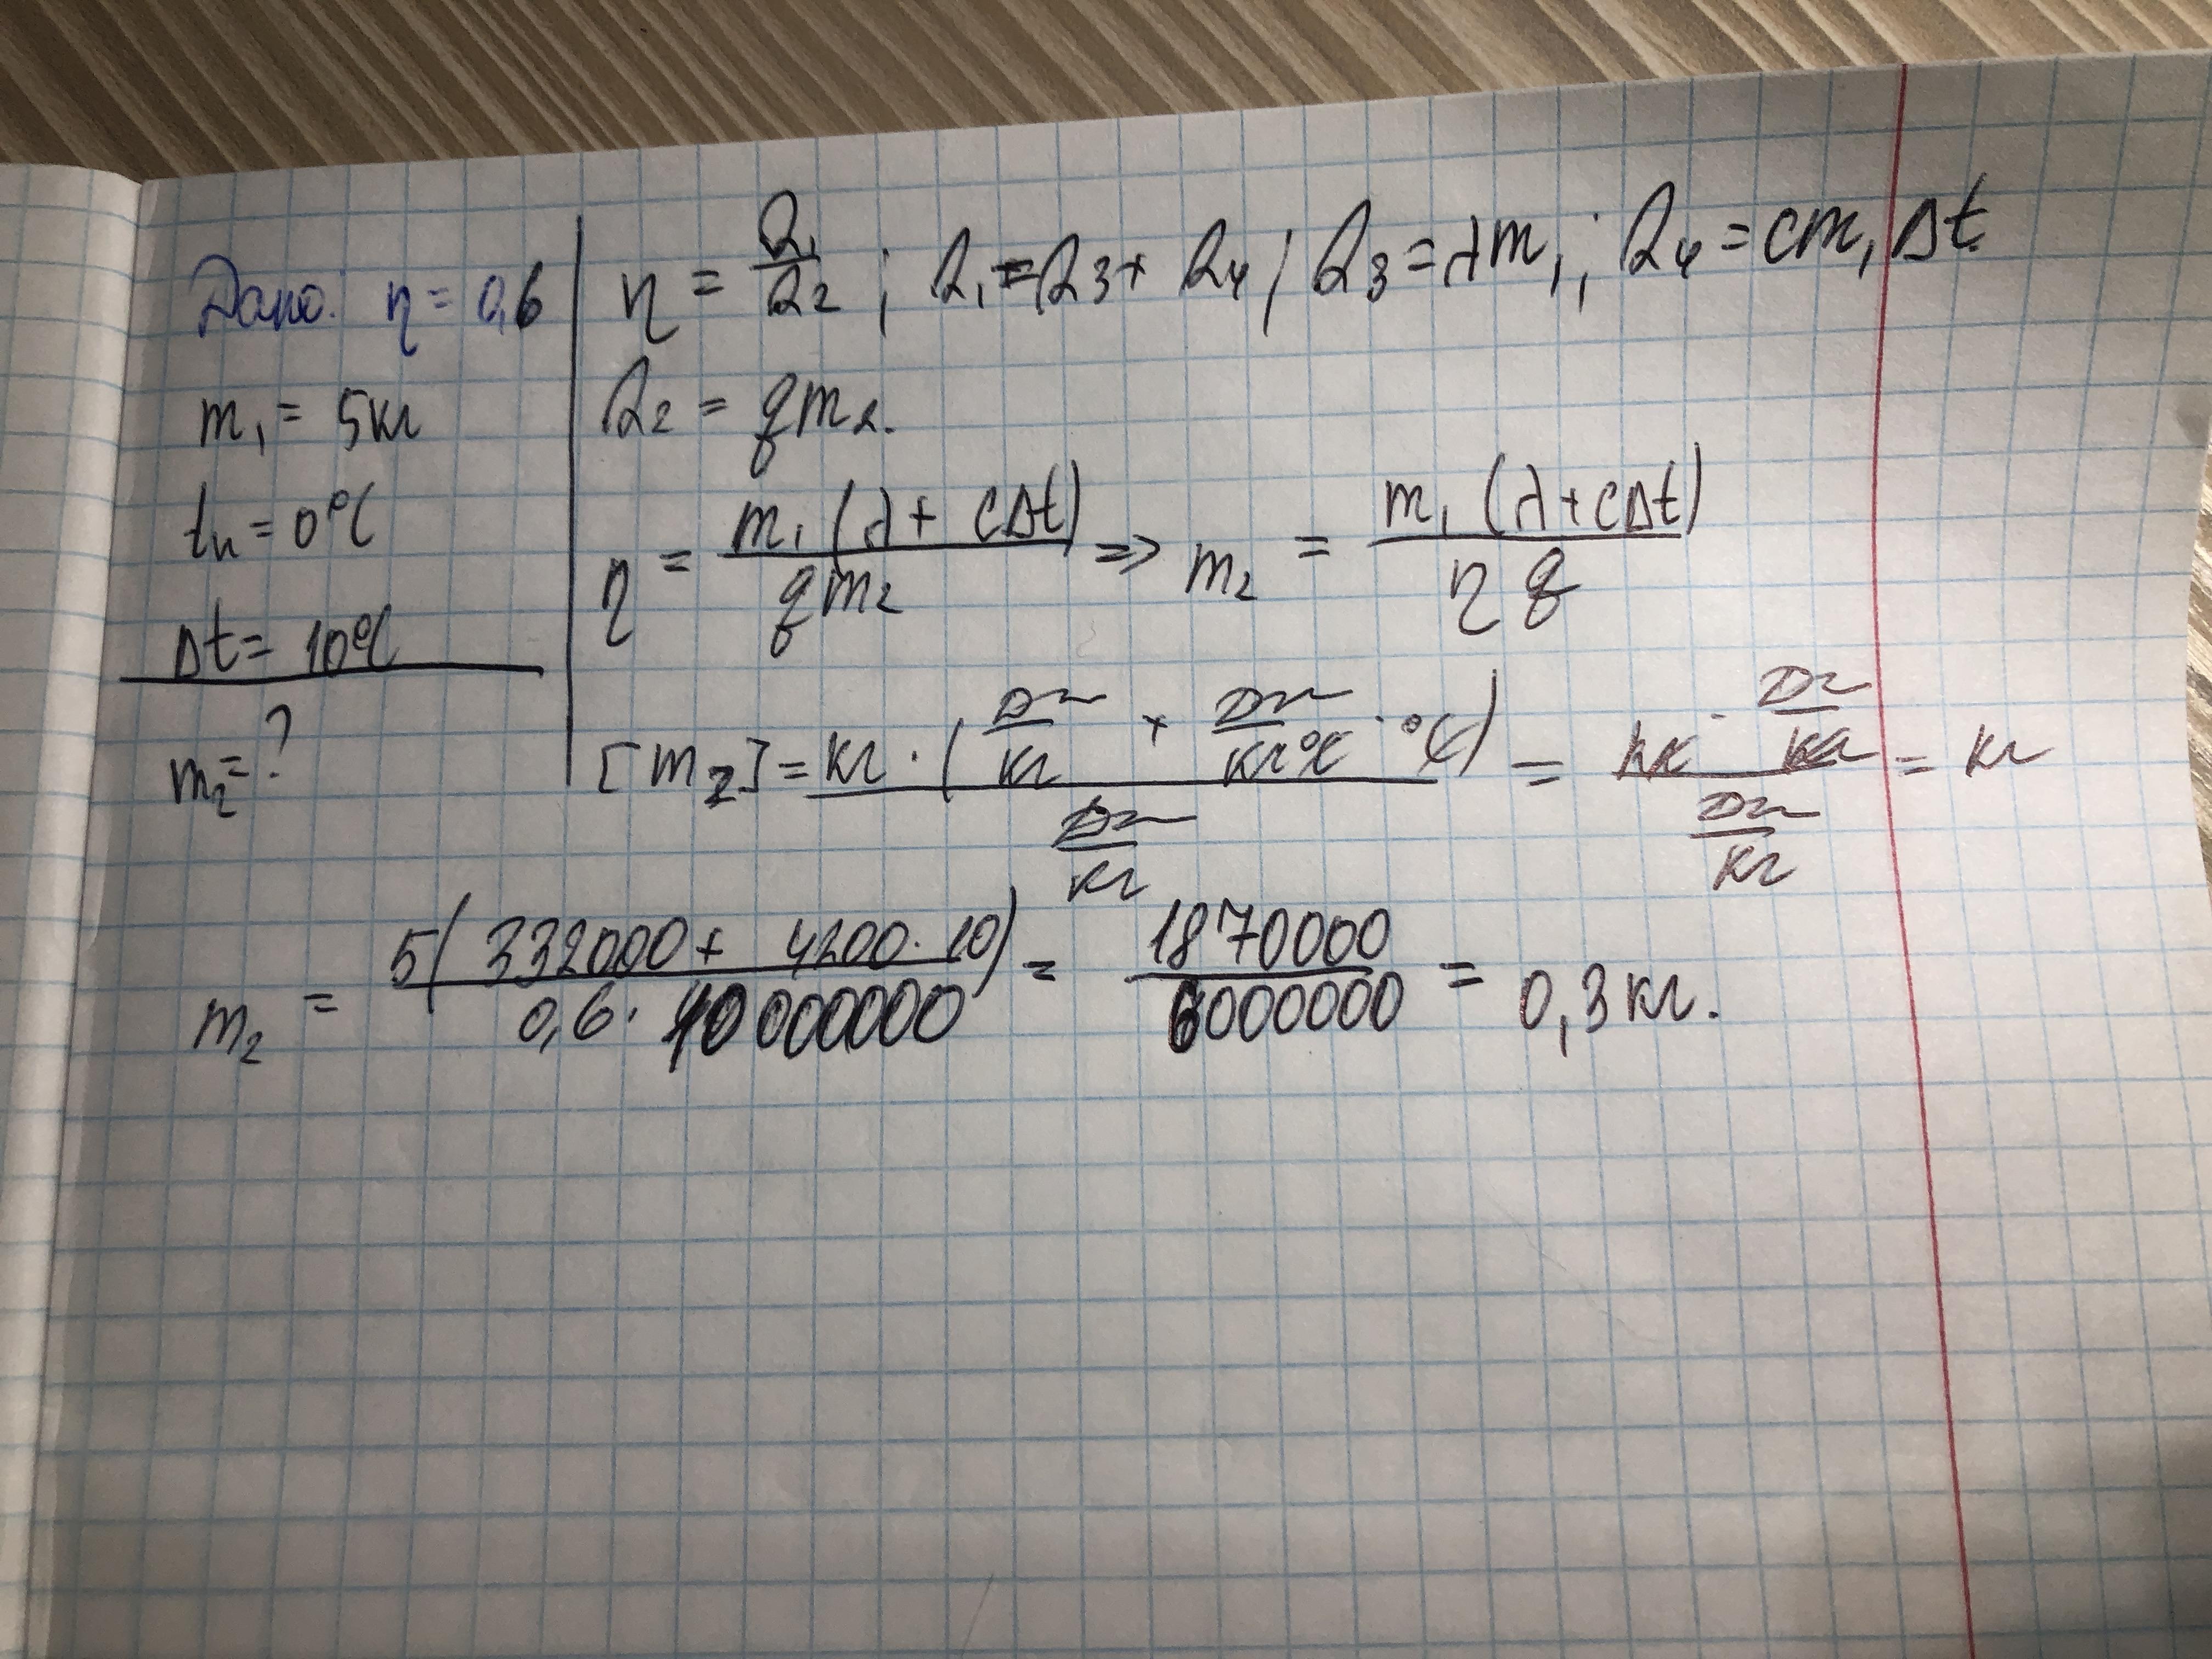 Дано: η = 0,6
m₁ = 5кг
tн = 0°C
Δt = 10°C
m₂ = ?
η = Q₁/Q₂ ; Q₁ = Q₃ + Q₄ / Q₃ = λm₁ ; Q₄ = cm₁Δt
Q₂ = qm₂.
η = m₁(λ + cΔt)/qm₂ => m₂ = m₁(λ + cΔt)/ηq
[m₂] = кг · (Дж/кг + Дж/кг°C · °C) / Дж/кг = кг · Дж/кг / Дж/кг = кг
m₂ = 5(332000 + 4200 · 10)/0,6 · 10000000 = 1870000/6000000 = 0,3 кг.